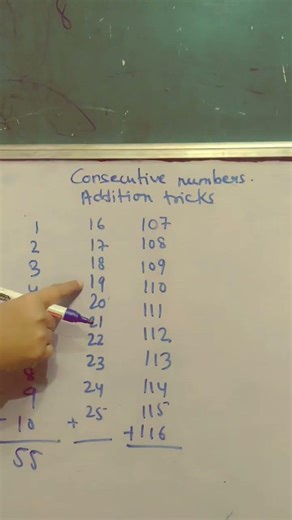 8
Consecutive numbers.
Addition tricks
1 16 107
2 17 108
3 18 109
4 19 110
20 111
21 112
22 113
8 23 114
9 24 115
10 + 25 +116
55